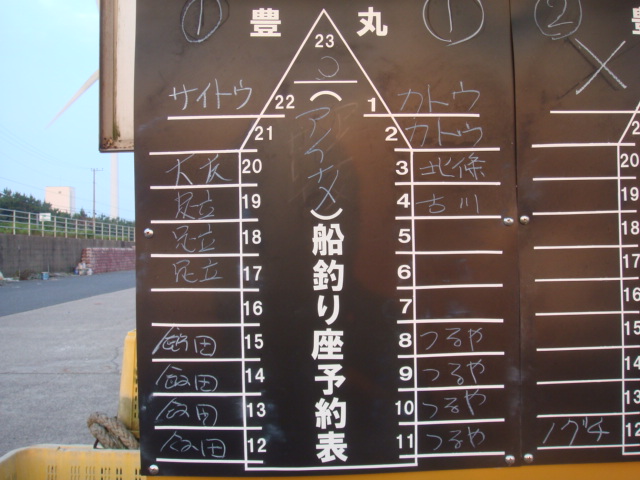 ① 豊 丸 ①
23
サイトウ 22 1 カトウ
21 2 カトウ
大友 20 3 北條
足立 19 4 古川
足立 18 5
足立 17 6
16 7
飯田 15 8 つるや
飯田 14 9 つるや
飯田 13 10 つるや
飯田 12 11 つるや
(アイナメ)船釣り座予約表
② 豊
×
20
19
18
17
16
15
14
13
ノグチ 12